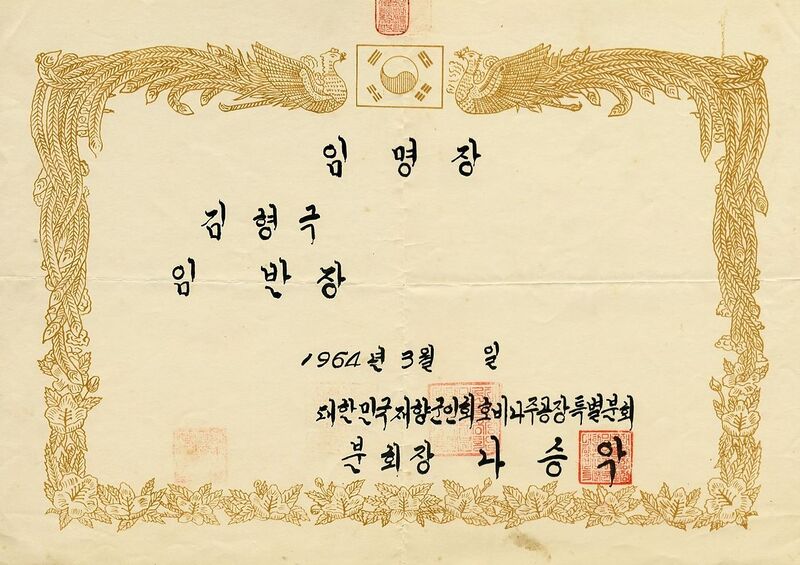 임 명 장
김 형 국
임 반 장
1964 년 3 월 일
대한민국재향군인회호비나주공장특별분회
분회장 나 승